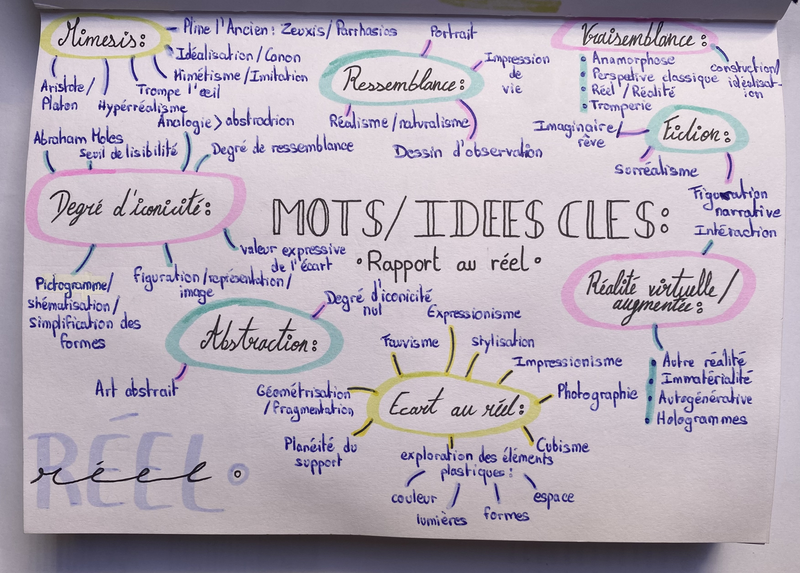 Mimesis:
Pline l'Ancien: Zeuxis/Parrhasios
Idéalisation/Canon
Mimétisme/Imitation
Trompe l'œil
Hypérréalisme
Aristote/
Platon
Ressemblance:
Portrait
Impression
de
vie
Réalisme/naturalisme
Dessin d'observation
Vraisemblance:
Anamorphose
Perspetive classique
Réel/Réalité
Tromperie
constuction/
idéalisat-
ion
Fiction:
Imaginaire/
rêve
Surréalisme
Figuration
narrative
Intéraction
Degré d'iconicité:
Abraham Moles
Seuil de lisibilité
Analogie > abstradrion
Degré de ressemblance
valeur expressive
de l'écart
figuration/représentation/
image
Pictogramme/
shématisation/
simplification des
formes
MOTS/IDEES CLES:
•Rapport au réel•
Réalité virtuelle/
augmentée:
Autre réalité
Immatérialité
Autogénérative
Hologrammes
Abstraction:
Degré d'iconicité
nul
Art abstrait
Ecart au réel:
Fauvisme
Expressionisme
stylisation
Impressionisme
Photographie
Cubisme
Géométrisation
/Fragmentation
Planéité du
support
exploration des éléments
plastiques:
couleur
lumières
formes
espace
RÉEL
réel